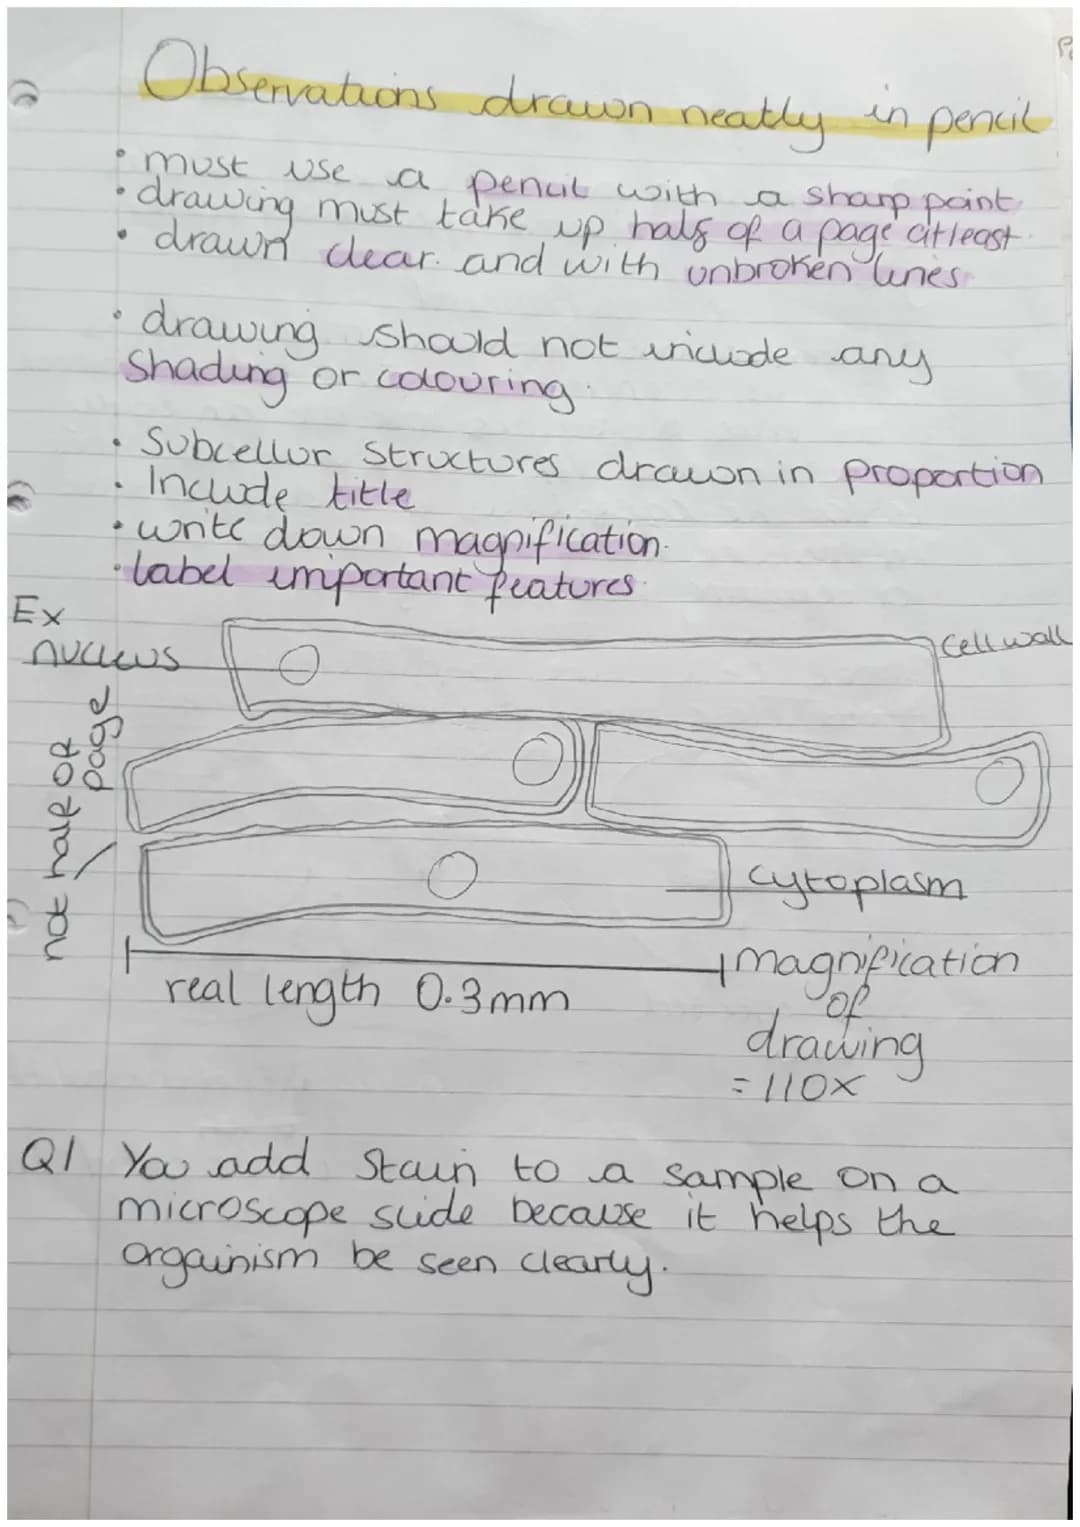 Observations drawn neatly in pencil
• must use a pencil with a sharp point
• drawing must take up half of a page atleast.
• drawn clear. and with unbroken lines
• drawing should not include any
shading or colouring.
• Subcellur structures drawn in proportion
• Include title
• write down magnification.
• label important features.
Ex
nucleus
cell wall
not half of
page
cytoplasm
real length 0.3mm
magnification
of
drawing
= 110x
Q1 You add stain to a sample on a
microscope slide because it helps the
orgainism be seen clearly.